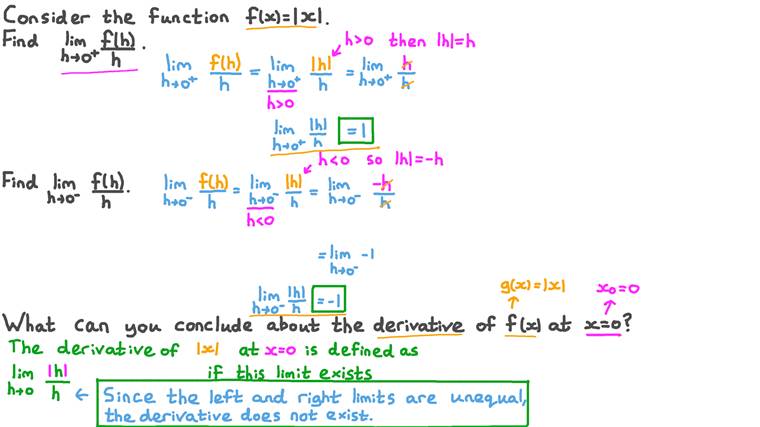 Consider the function f(x)=|x|.
Find lim h→0⁺ f(h)/h.
h>0 then |h|=h
lim h→0⁺ f(h)/h = lim h→0⁺ |h|/h = lim h→0⁺ h/h
h>0
lim h→0⁺ |h|/h =1
h<0 so |h|=-h
Find lim h→0⁻ f(h)/h.
lim h→0⁻ f(h)/h = lim h→0⁻ |h|/h = lim h→0⁻ -h/h
h<0
= lim h→0⁻ -1
lim h→0⁻ |h|/h =-1
g(x)=|x|
x₀=0
What can you conclude about the derivative of f(x) at x=0?
The derivative of |x| at x=0 is defined as
lim h→0 |h|/h
if this limit exists
← Since the left and right limits are unequal,
the derivative does not exist.